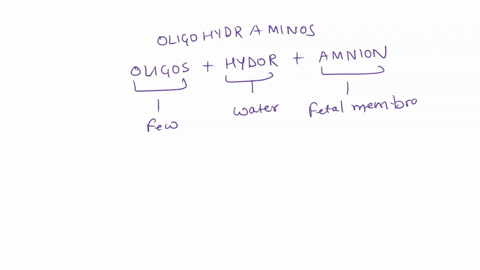 OLIGOHYDRAMINOS
OLIGOS + HYDOR + AMNION
few water fetal mem-bro